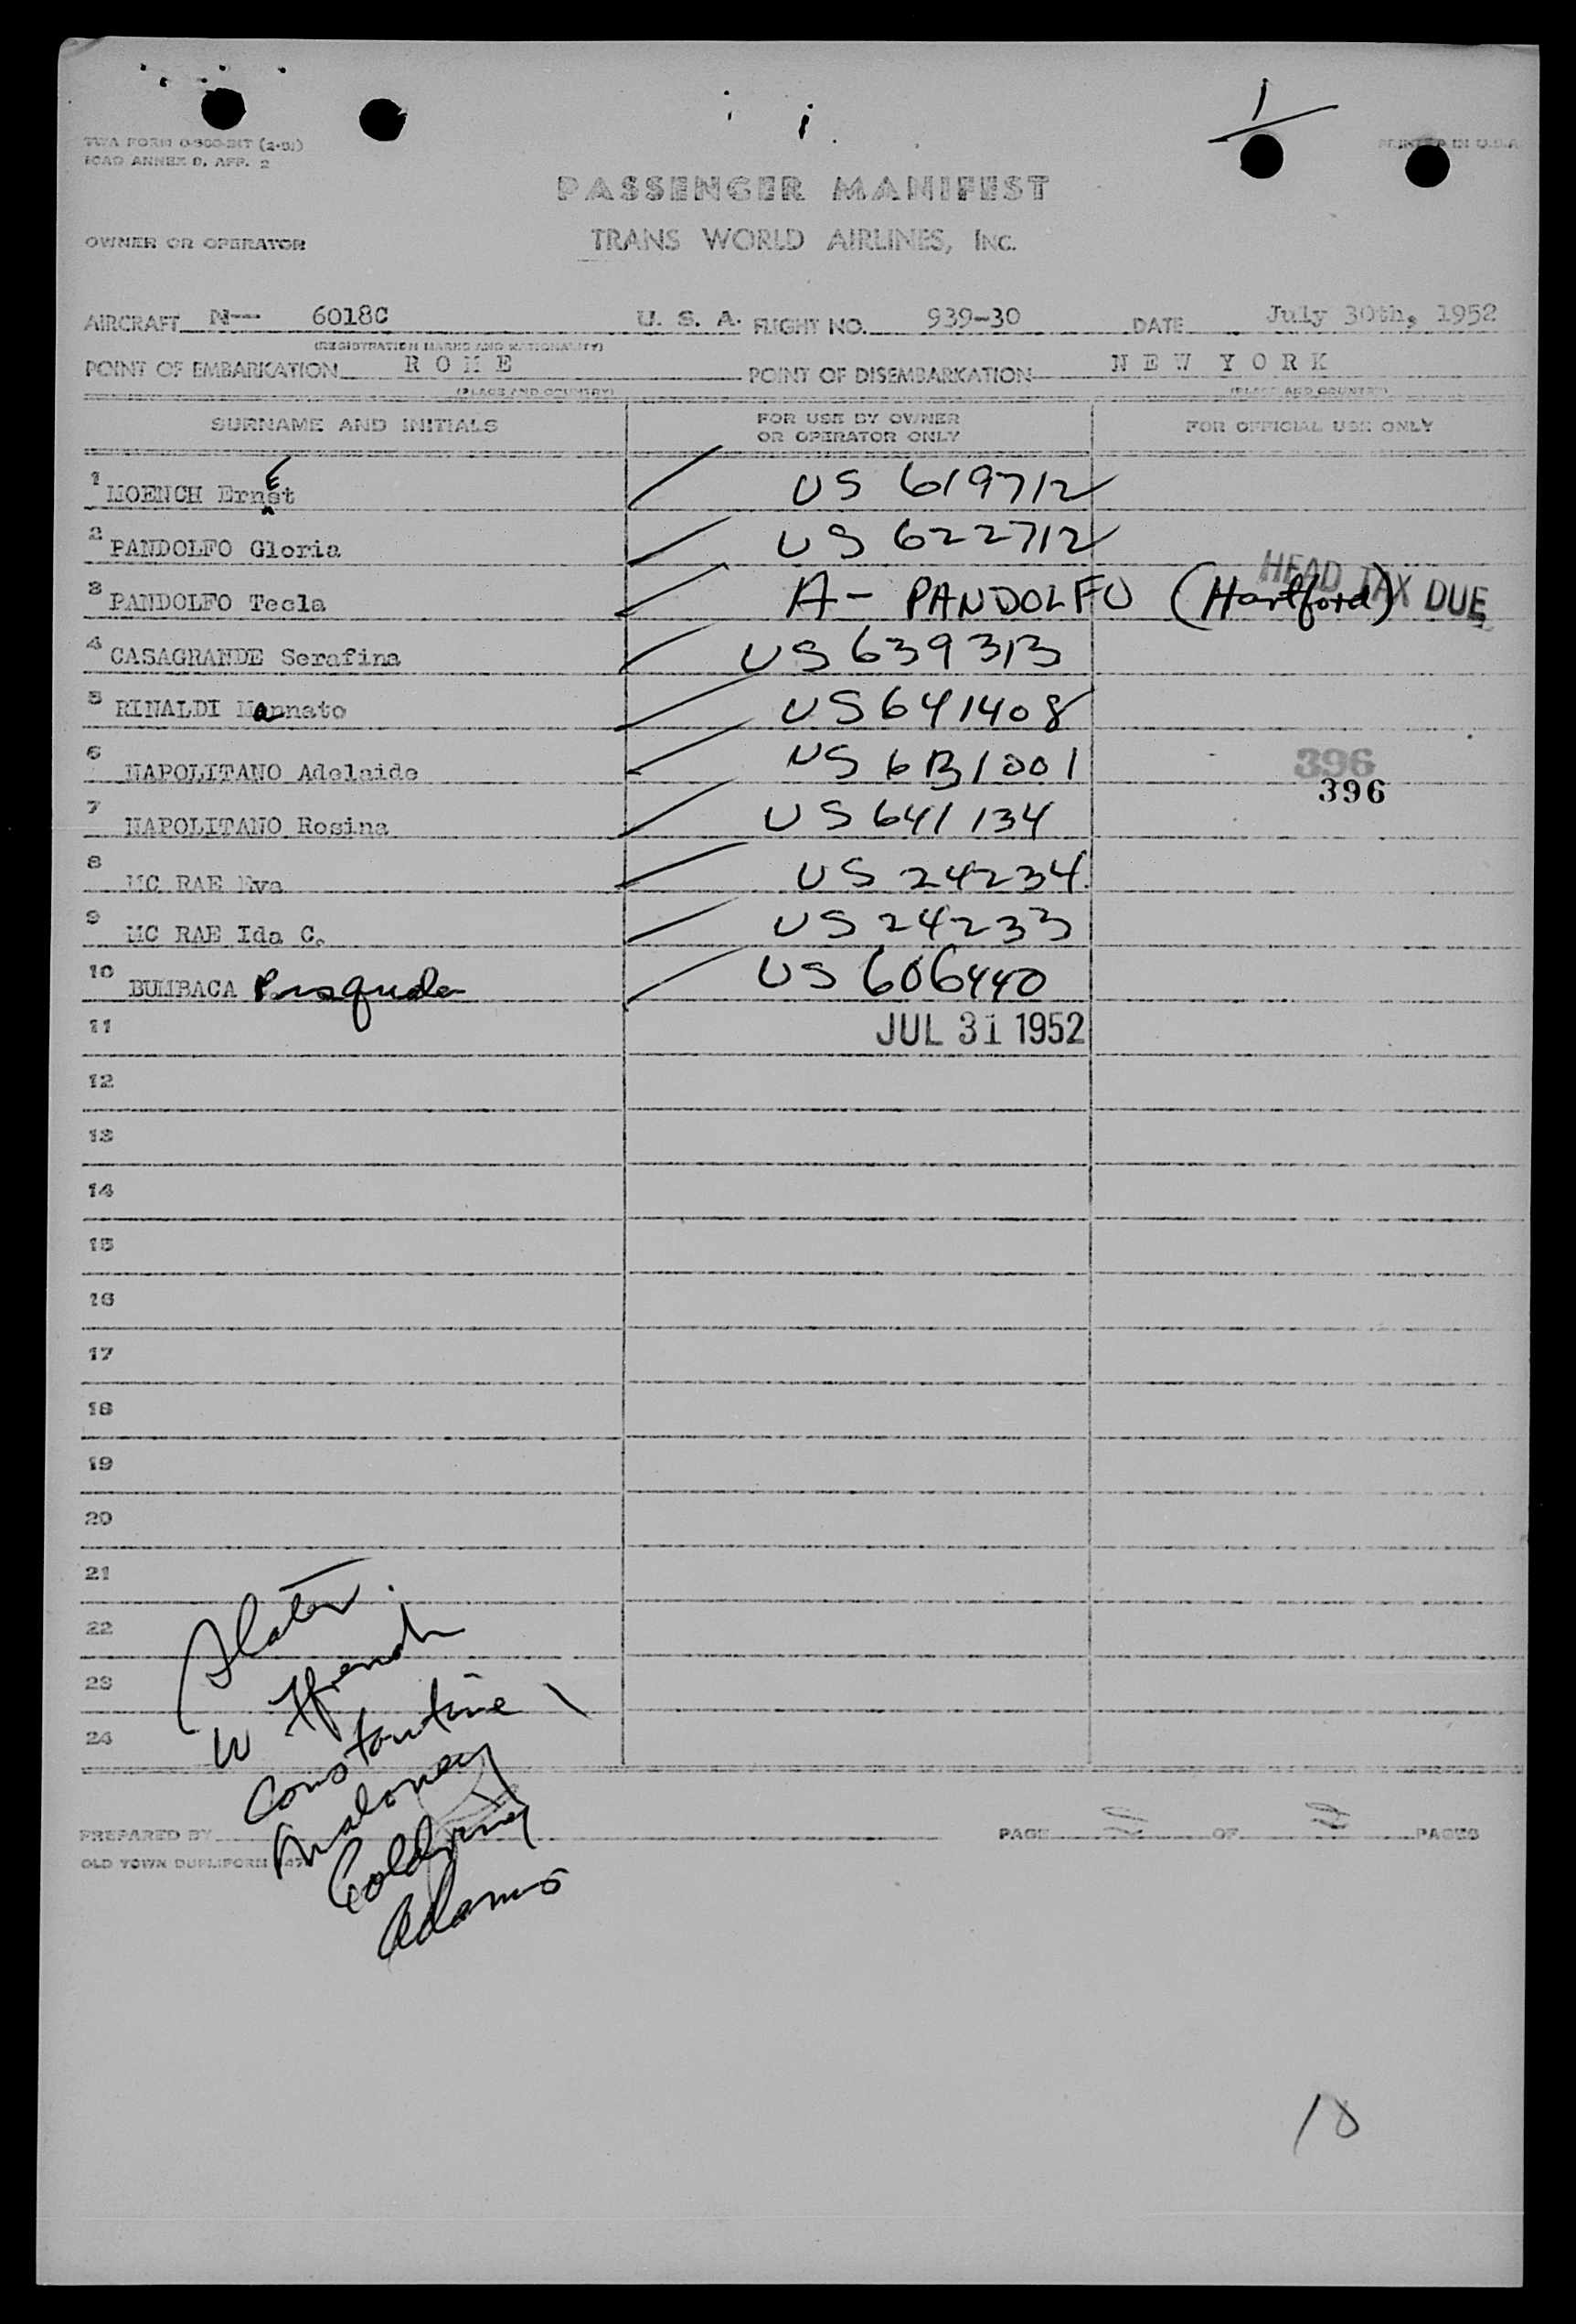 1
TWA FORM
ICAO ANNEX 9, APP. 2
PRINTED IN U.S.A.
PASSENGER MANIFEST
OWNER OR OPERATOR TRANS WORLD AIRLINES, INC.
AIRCRAFT N-- 6018C U. S. A. FLIGHT NO. 939-30 DATE July 30th, 1952
(REGISTRATION MARKS AND NATIONALITY)
POINT OF EMBARKATION R O M E POINT OF DISEMBARKATION N E W Y O R K
(PLACE AND COUNTRY) (PLACE AND COUNTRY)
SURNAME AND INITIALS FOR USE BY OWNER OR OPERATOR ONLY FOR OFFICIAL USE ONLY
1 MOENCH Ernest US 619712
2 PANDOLFO Gloria US 622712
3 PANDOLFO Tecla A- PANDOLFO (Hartford) HEAD TAX DUE
4 CASAGRANDE Serafina US 639313
5 RINALDI US 641408
6 NAPOLITANO Adelaide US 396
396
7 NAPOLITANO Rosina US 641134
8 MC RAE Eva US 24234
9 MC RAE Ida C. US 24233
10 BUMBACA Pasquale US 606440
11 JUL 31 1952
12
13
14
15
16
17
18
19
20
21
22
23
24
Slater
W Ffrench
Constantine
Maloney
Goldring
Adams
PREPARED BY PAGE OF PAGES
OLD TOWN DUPLIFORM
10